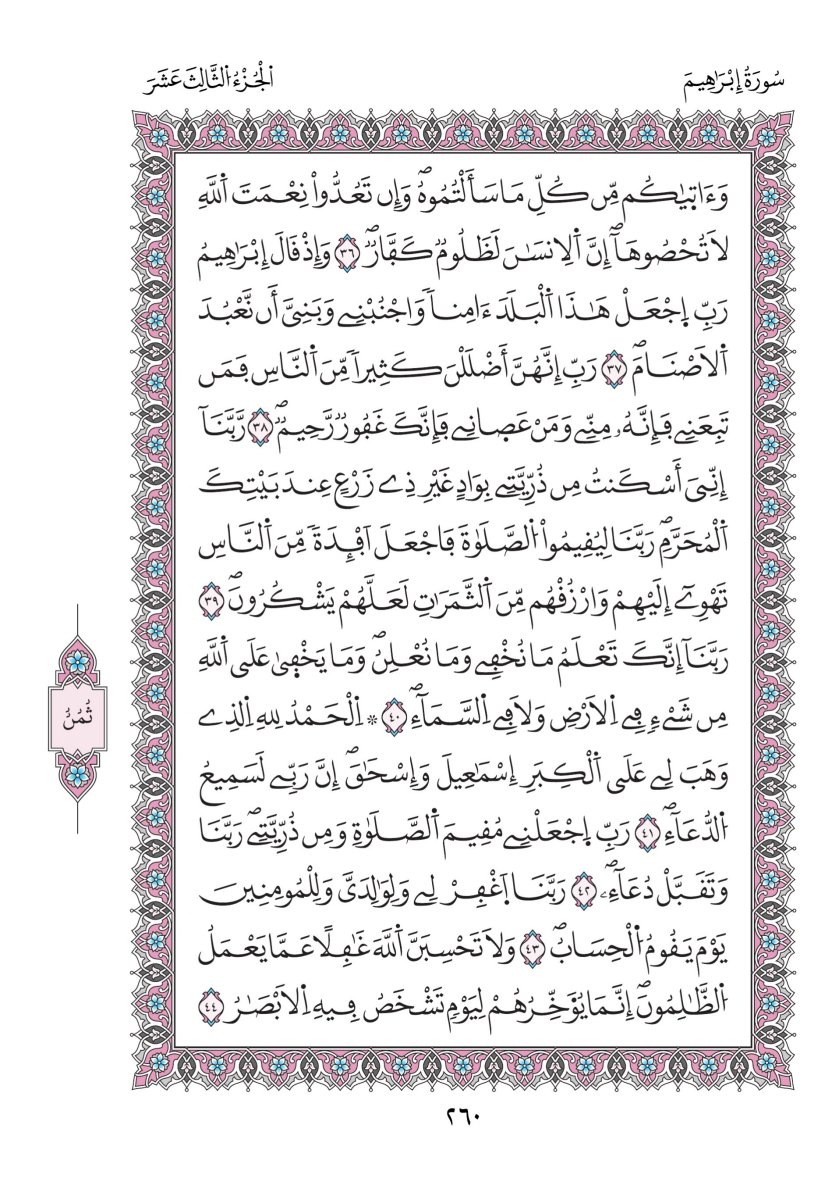 سُورَةُ إِبْرَٰهِيمَ
اَ۬لْجُزْءُ اُ۬لثَّالِثَ عَشَرَ
وَءَات۪يٰكُم مِّن كُلِّ مَا سَأَلْتُمُوهُۖ وَإِن تَعُدُّواْ نِعْمَتَ اَ۬للَّهِ
لَا تُحْصُوهَآۖ إِنَّ اَ۬لِانسَٰنَ لَظَلُومٞ كَفَّارٞۖ ٣٦ وَإِذْ قَالَ إِبْرَٰهِيمُ
رَبِّ اِ۪جْعَلْ هَٰذَا اَ۬لْبَلَدَ ءَامِناٗ وَاجْنُبْنِے وَبَنِيَّ أَن نَّعْبُدَ
اَ۬لَاصْنَامَۖ ٣٧ رَبِّ إِنَّهُنَّ أَضْلَلْنَ كَثِيراٗ مِّنَ اَ۬لنَّاسِ فَمَن
تَبِعَنِے فَإِنَّهُۥ مِنِّے وَمَنْ عَصَانِے فَإِنَّكَ غَفُورٞ رَّحِيمٞۖ ٣٨ رَّبَّنَآ
إِنِّيَ أَسْكَنتُ مِن ذُرِّيَّتِے بِوَادٍ غَيْرِ ذِے زَرْعٍ عِندَ بَيْتِكَ
اَ۬لْمُحَرَّمِۖ رَبَّنَا لِيُقِيمُواْ اُ۬لصَّلَوٰةَ فَاجْعَلَ اَفْـِٕدَةٗ مِّنَ اَ۬لنَّاسِ
تَهْوِےٓ إِلَيْهِمْ وَارْزُقْهُم مِّنَ اَ۬لثَّمَرَٰتِ لَعَلَّهُمْ يَشْكُرُونَۖ ٣٩
رَبَّنَآ إِنَّكَ تَعْلَمُ مَا نُخْفِے وَمَا نُعْلِنُۖ وَمَا يَخْف۪يٰ عَلَي اَ۬للَّهِ
مِن شَےْءٖ فِے اِ۬لَارْضِ وَلَا فِے اِ۬لسَّمَآءِۖ ٤٠ ۞ اِ۬لْحَمْدُ لِلهِ اِ۬لذِے
وَهَبَ لِے عَلَي اَ۬لْكِبَرِ إِسْمَٰعِيلَ وَإِسْحَٰقَۖ إِنَّ رَبِّے لَسَمِيعُ
اُ۬لدُّعَآءِۖ ٤١ رَبِّ اِ۪جْعَلْنِے مُقِيمَ اَ۬لصَّلَوٰةِ وَمِن ذُرِّيَّتِےۖ رَبَّنَا
وَتَقَبَّلْ دُعَآءِۦۖ ٤٢ رَبَّنَا اَ۪غْفِرْ لِے وَلِوَٰلِدَيَّ وَلِلْمُومِنِينَ
يَوْمَ يَقُومُ اُ۬لْحِسَابُۖ ٤٣ وَلَا تَحْسِبَنَّ اَ۬للَّهَ غَٰفِلاً عَمَّا يَعْمَلُ
اُ۬لظَّٰلِمُونَۖ إِنَّمَا يُؤَخِّرُهُمْ لِيَوْمٖ تَشْخَصُ فِيهِ اِ۬لَابْصَٰرُ ٤٤
ثُمُنُ
٢٦٠